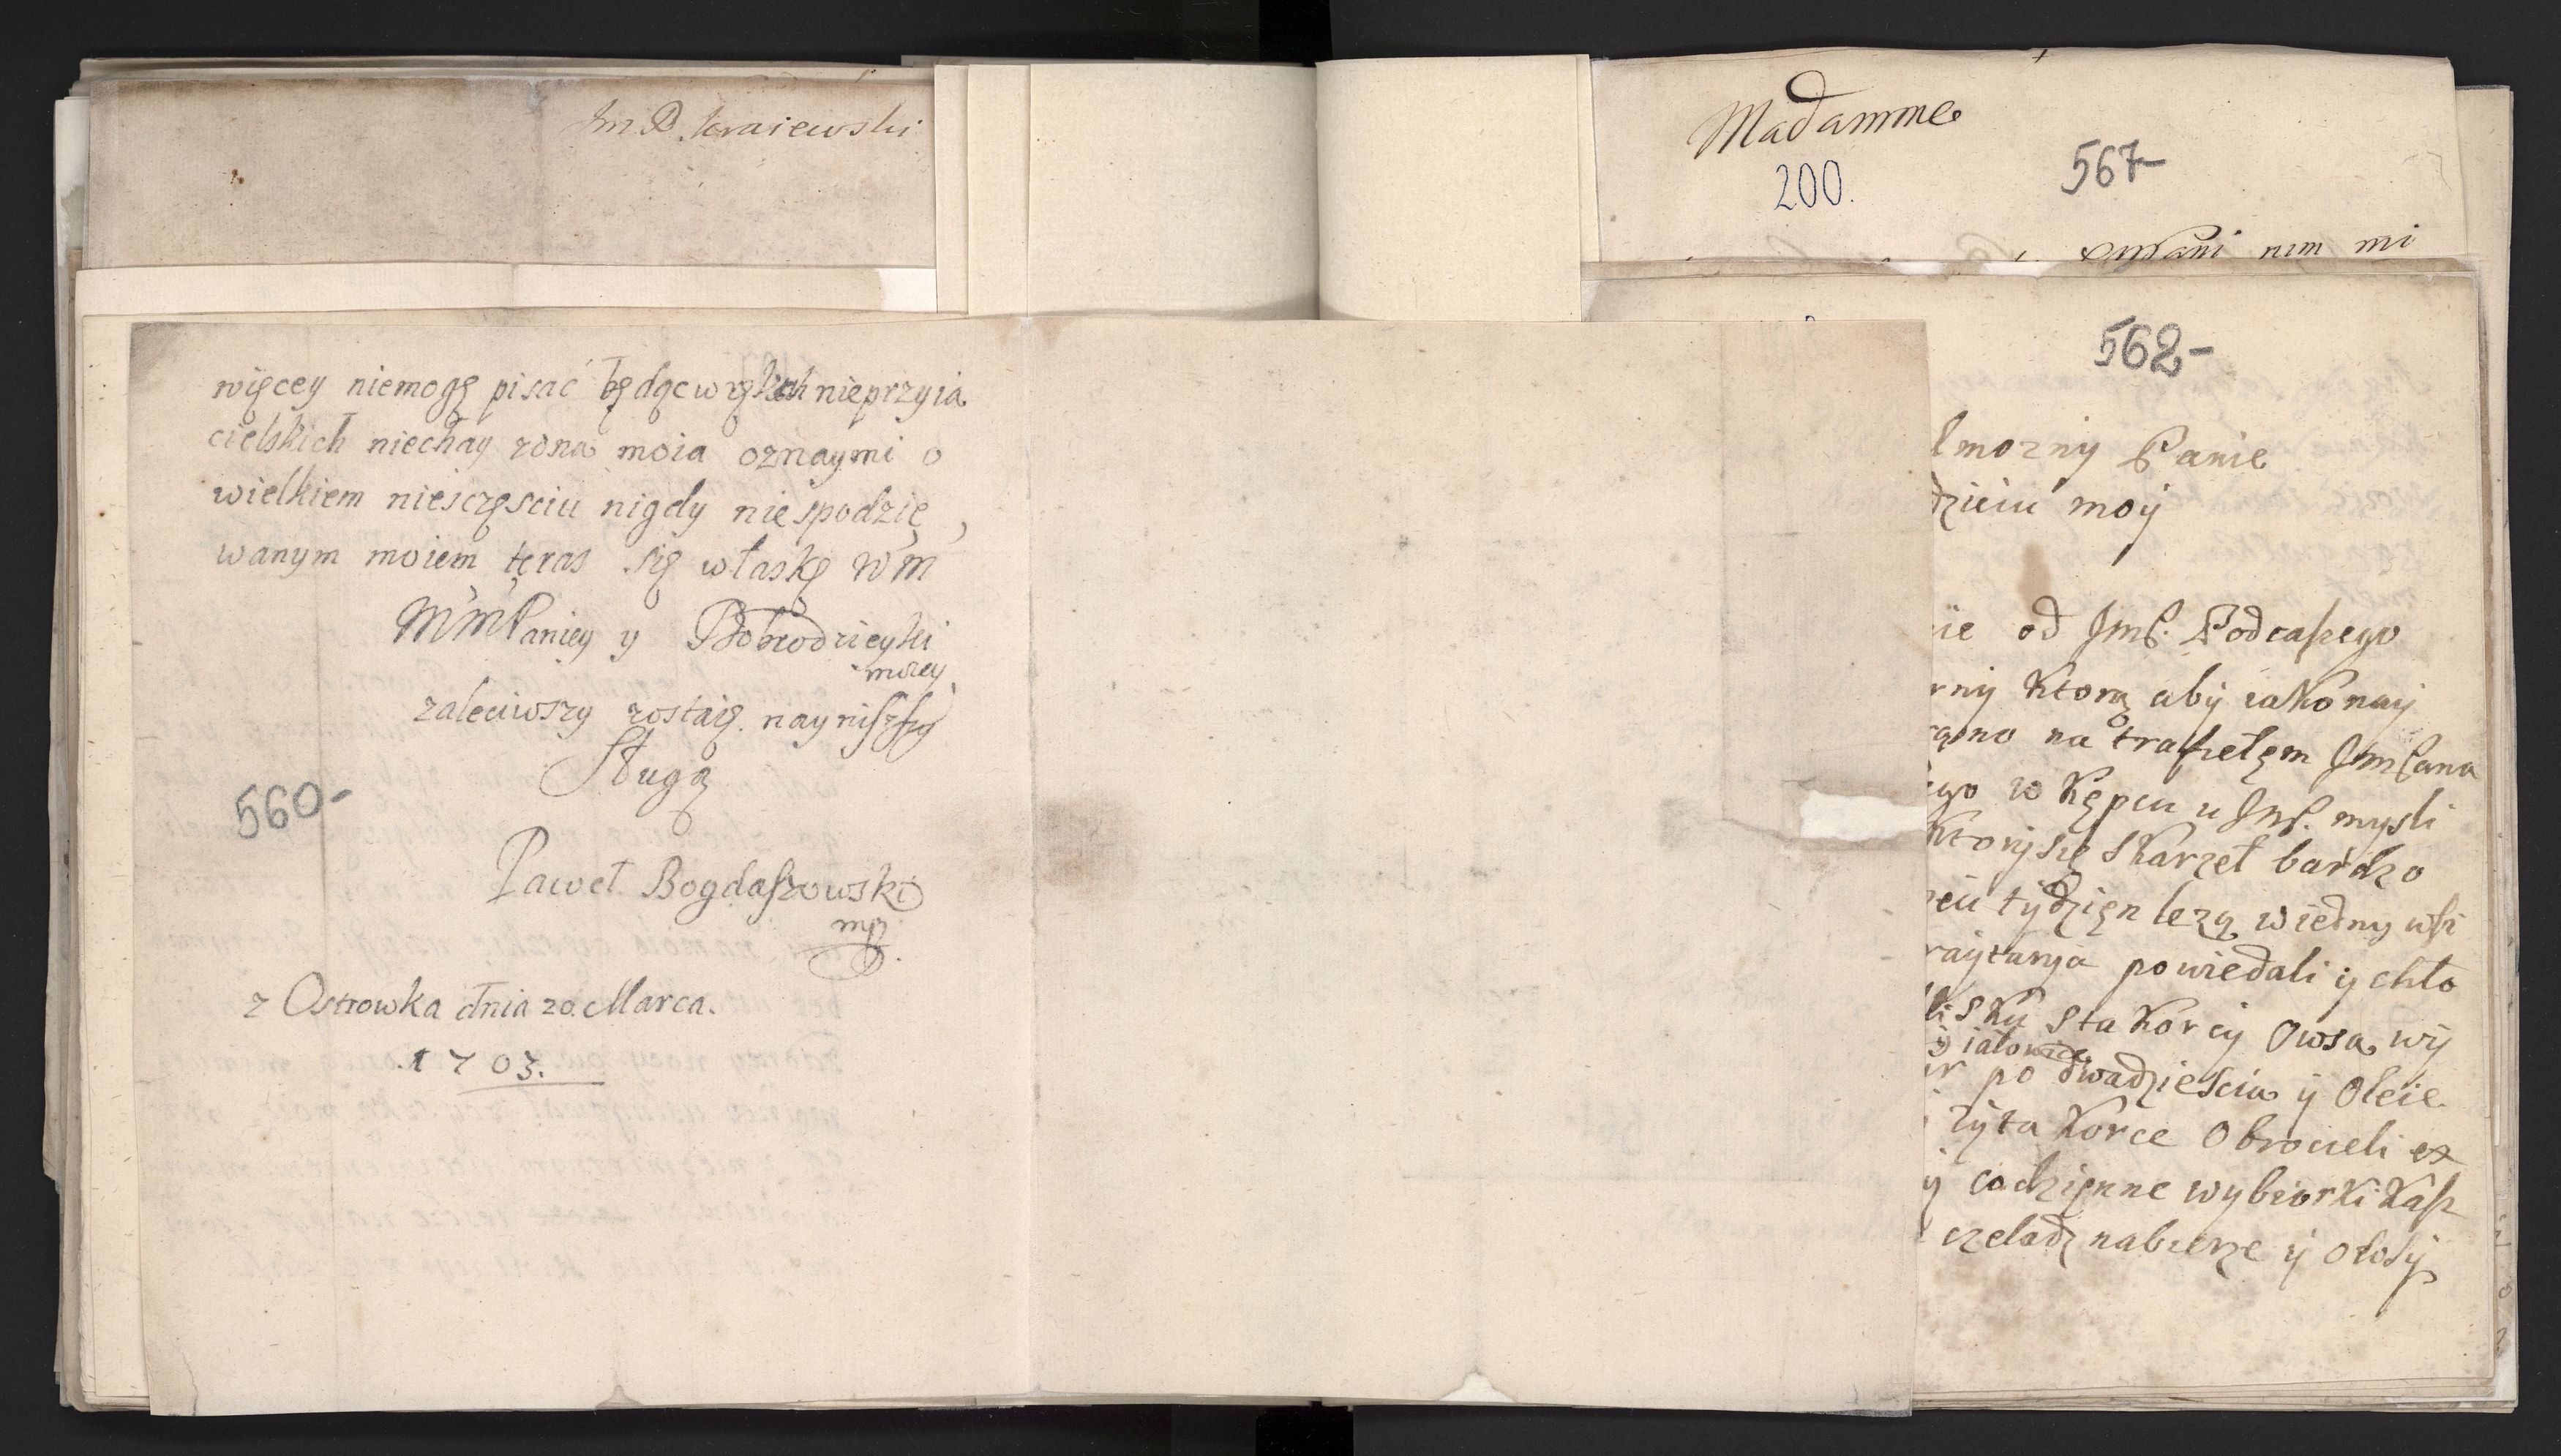 Im P. Kraiewski
więcey niemogę pisać będąc w rękach nieprzyia
cielskich niechay zona moia oznaymi o
wielkiem niesczęsciu nigdy niespodzie,
wanym moiem teras się właskę W M
M M Paniey y Dobrodzieyki
moiey
zaleciwszy zostaię nayniszszy
Sługą
560-
Paweł Bogdaszowski
mp
z Ostrowka dnia 20. Marca.
1703.
Madamme
567-
200.
nim mi
562-
lmozny Panie
dzieiu moy
ie od JmP. Podczaszego
rny Ktorą aby iako nay
na trafiełem Jm Pana
ego w Kępcu u JmP. mysli
Ktory się skarzeł bardzo
tydzien lezą wiedny wsi
raytarya powiedali y chło
sta Korcy Owsa wy
y iałowice
po dwadziescia y Oleie
zyta Korce Obrocieli ex
y codzienne wybiorki Kasz
czeladz nabierze y